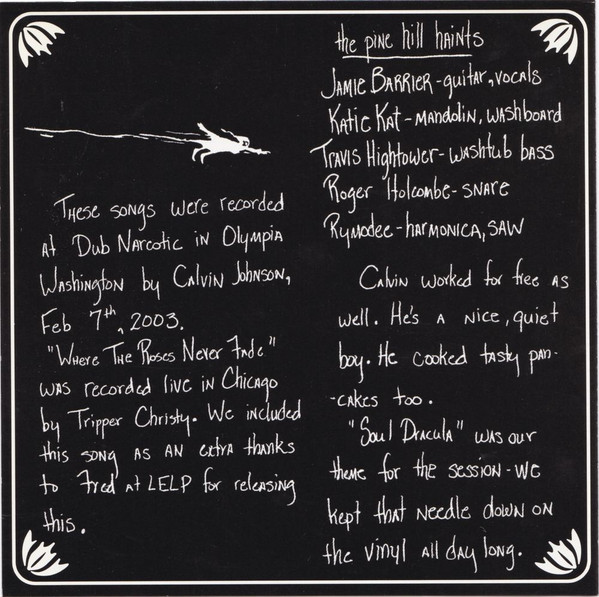 These songs were recorded
at Dub Narcotic in Olympia
Washington by Calvin Johnson,
Feb 7th, 2003.
"Where The Roses Never Fade"
was recorded live in Chicago
by Tripper Christy. We included
this song as an extra thanks
to Fred at LELP for releasing
this.
the pine hill haints
Jamie Barrier - guitar, vocals
Katie Kat - mandolin, washboard
Travis Hightower - washtub bass
Roger Holcombe - snare
Rymodee - harmonica, saw
Calvin worked for free as
well. He's a nice, quiet
boy. He cooked tasty pan-
-cakes too.
"Soul Dracula" was our
theme for the session - we
kept that needle down on
the vinyl all day long.